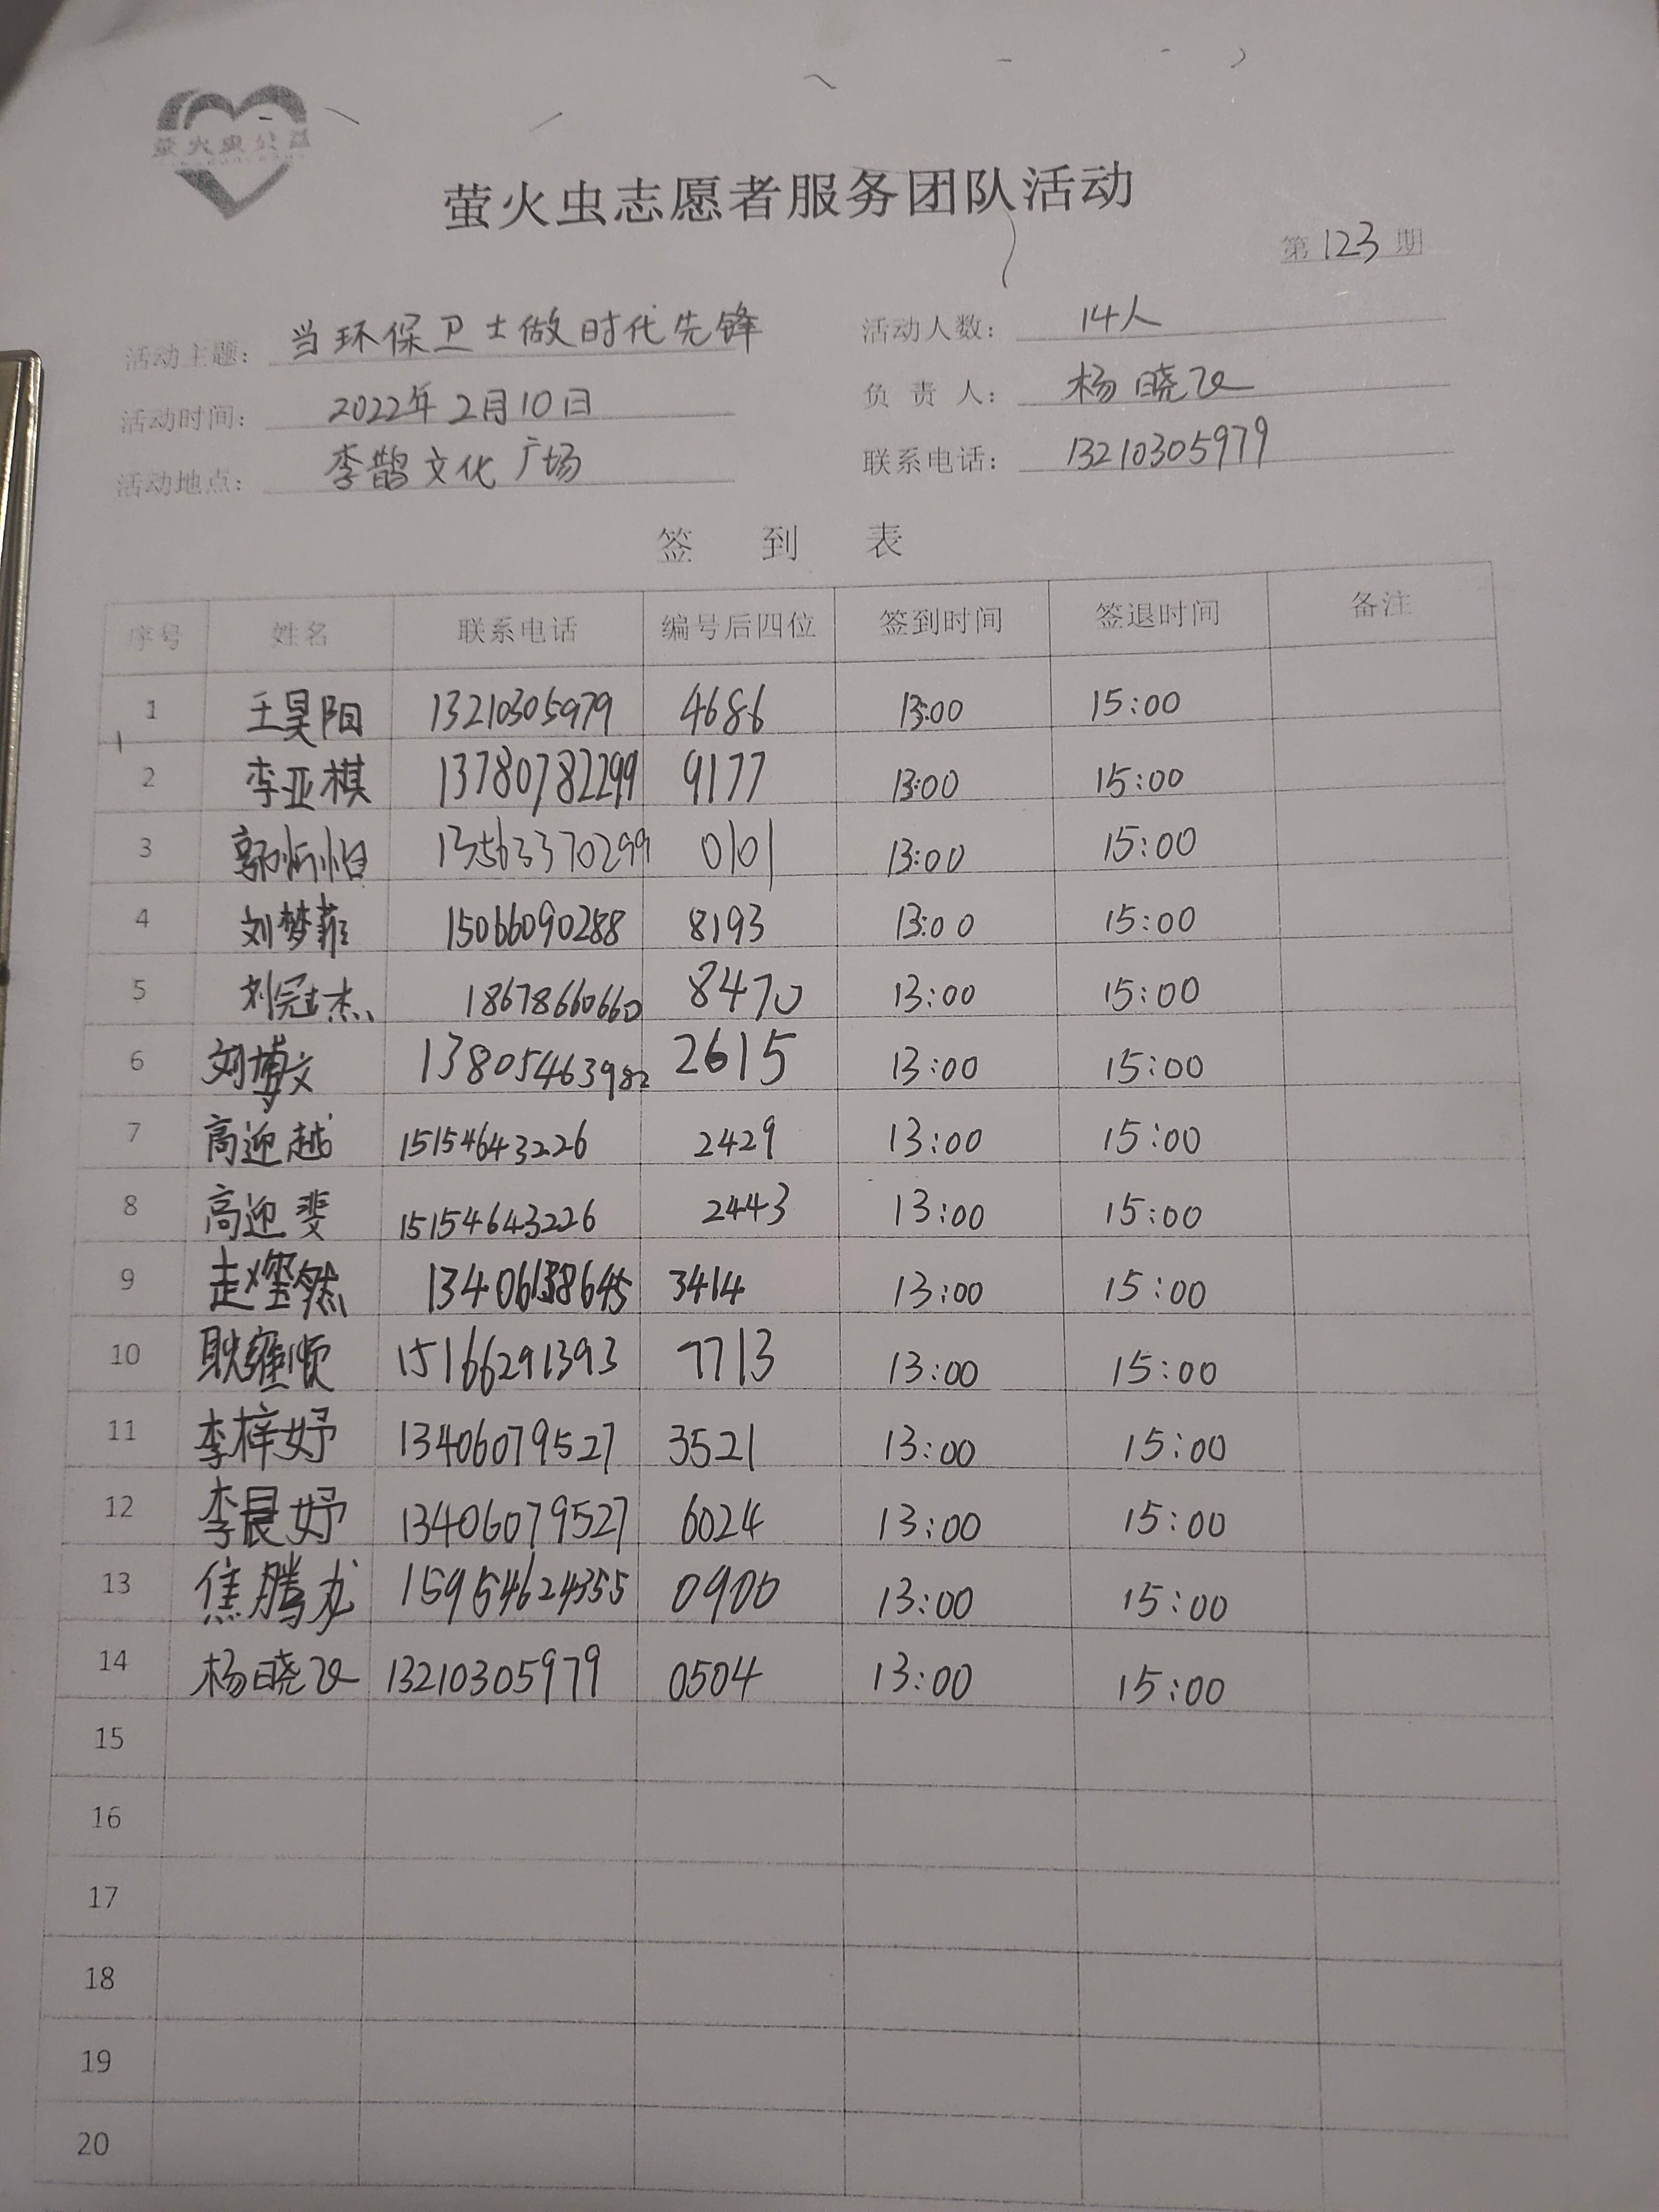 萤火虫公益
萤火虫志愿者服务团队活动
第123期
活动主题: 当环保卫士做时代先锋 活动人数: 14人
活动时间: 2022年2月10日 负责人: 杨晓飞
活动地点: 李鹊文化广场 联系电话: 13210305979
签到表
序号 姓名 联系电话 编号后四位 签到时间 签退时间 备注
1 王昊阳 13210305979 4686 13:00 15:00
2 李亚棋 13780782299 9177 13:00 15:00
3 13563370299 0101 13:00 15:00
4 刘梦菲 15066090288 8193 13:00 15:00
5 刘冠杰 18678660660 8470 13:00 15:00
6 刘博文 13805463982 2615 13:00 15:00
7 高迎越 15154643226 2429 13:00 15:00
8 高迎斐 15154643226 2443 13:00 15:00
9 3414 13:00 15:00
10 耿雍顺 15166291393 7713 13:00 15:00
11 李梓妤 13406079527 3521 13:00 15:00
12 李晨妤 13406079527 6024 13:00 15:00
13 焦腾龙 15954624355 0900 13:00 15:00
14 杨晓飞 13210305979 0504 13:00 15:00
15
16
17
18
19
20